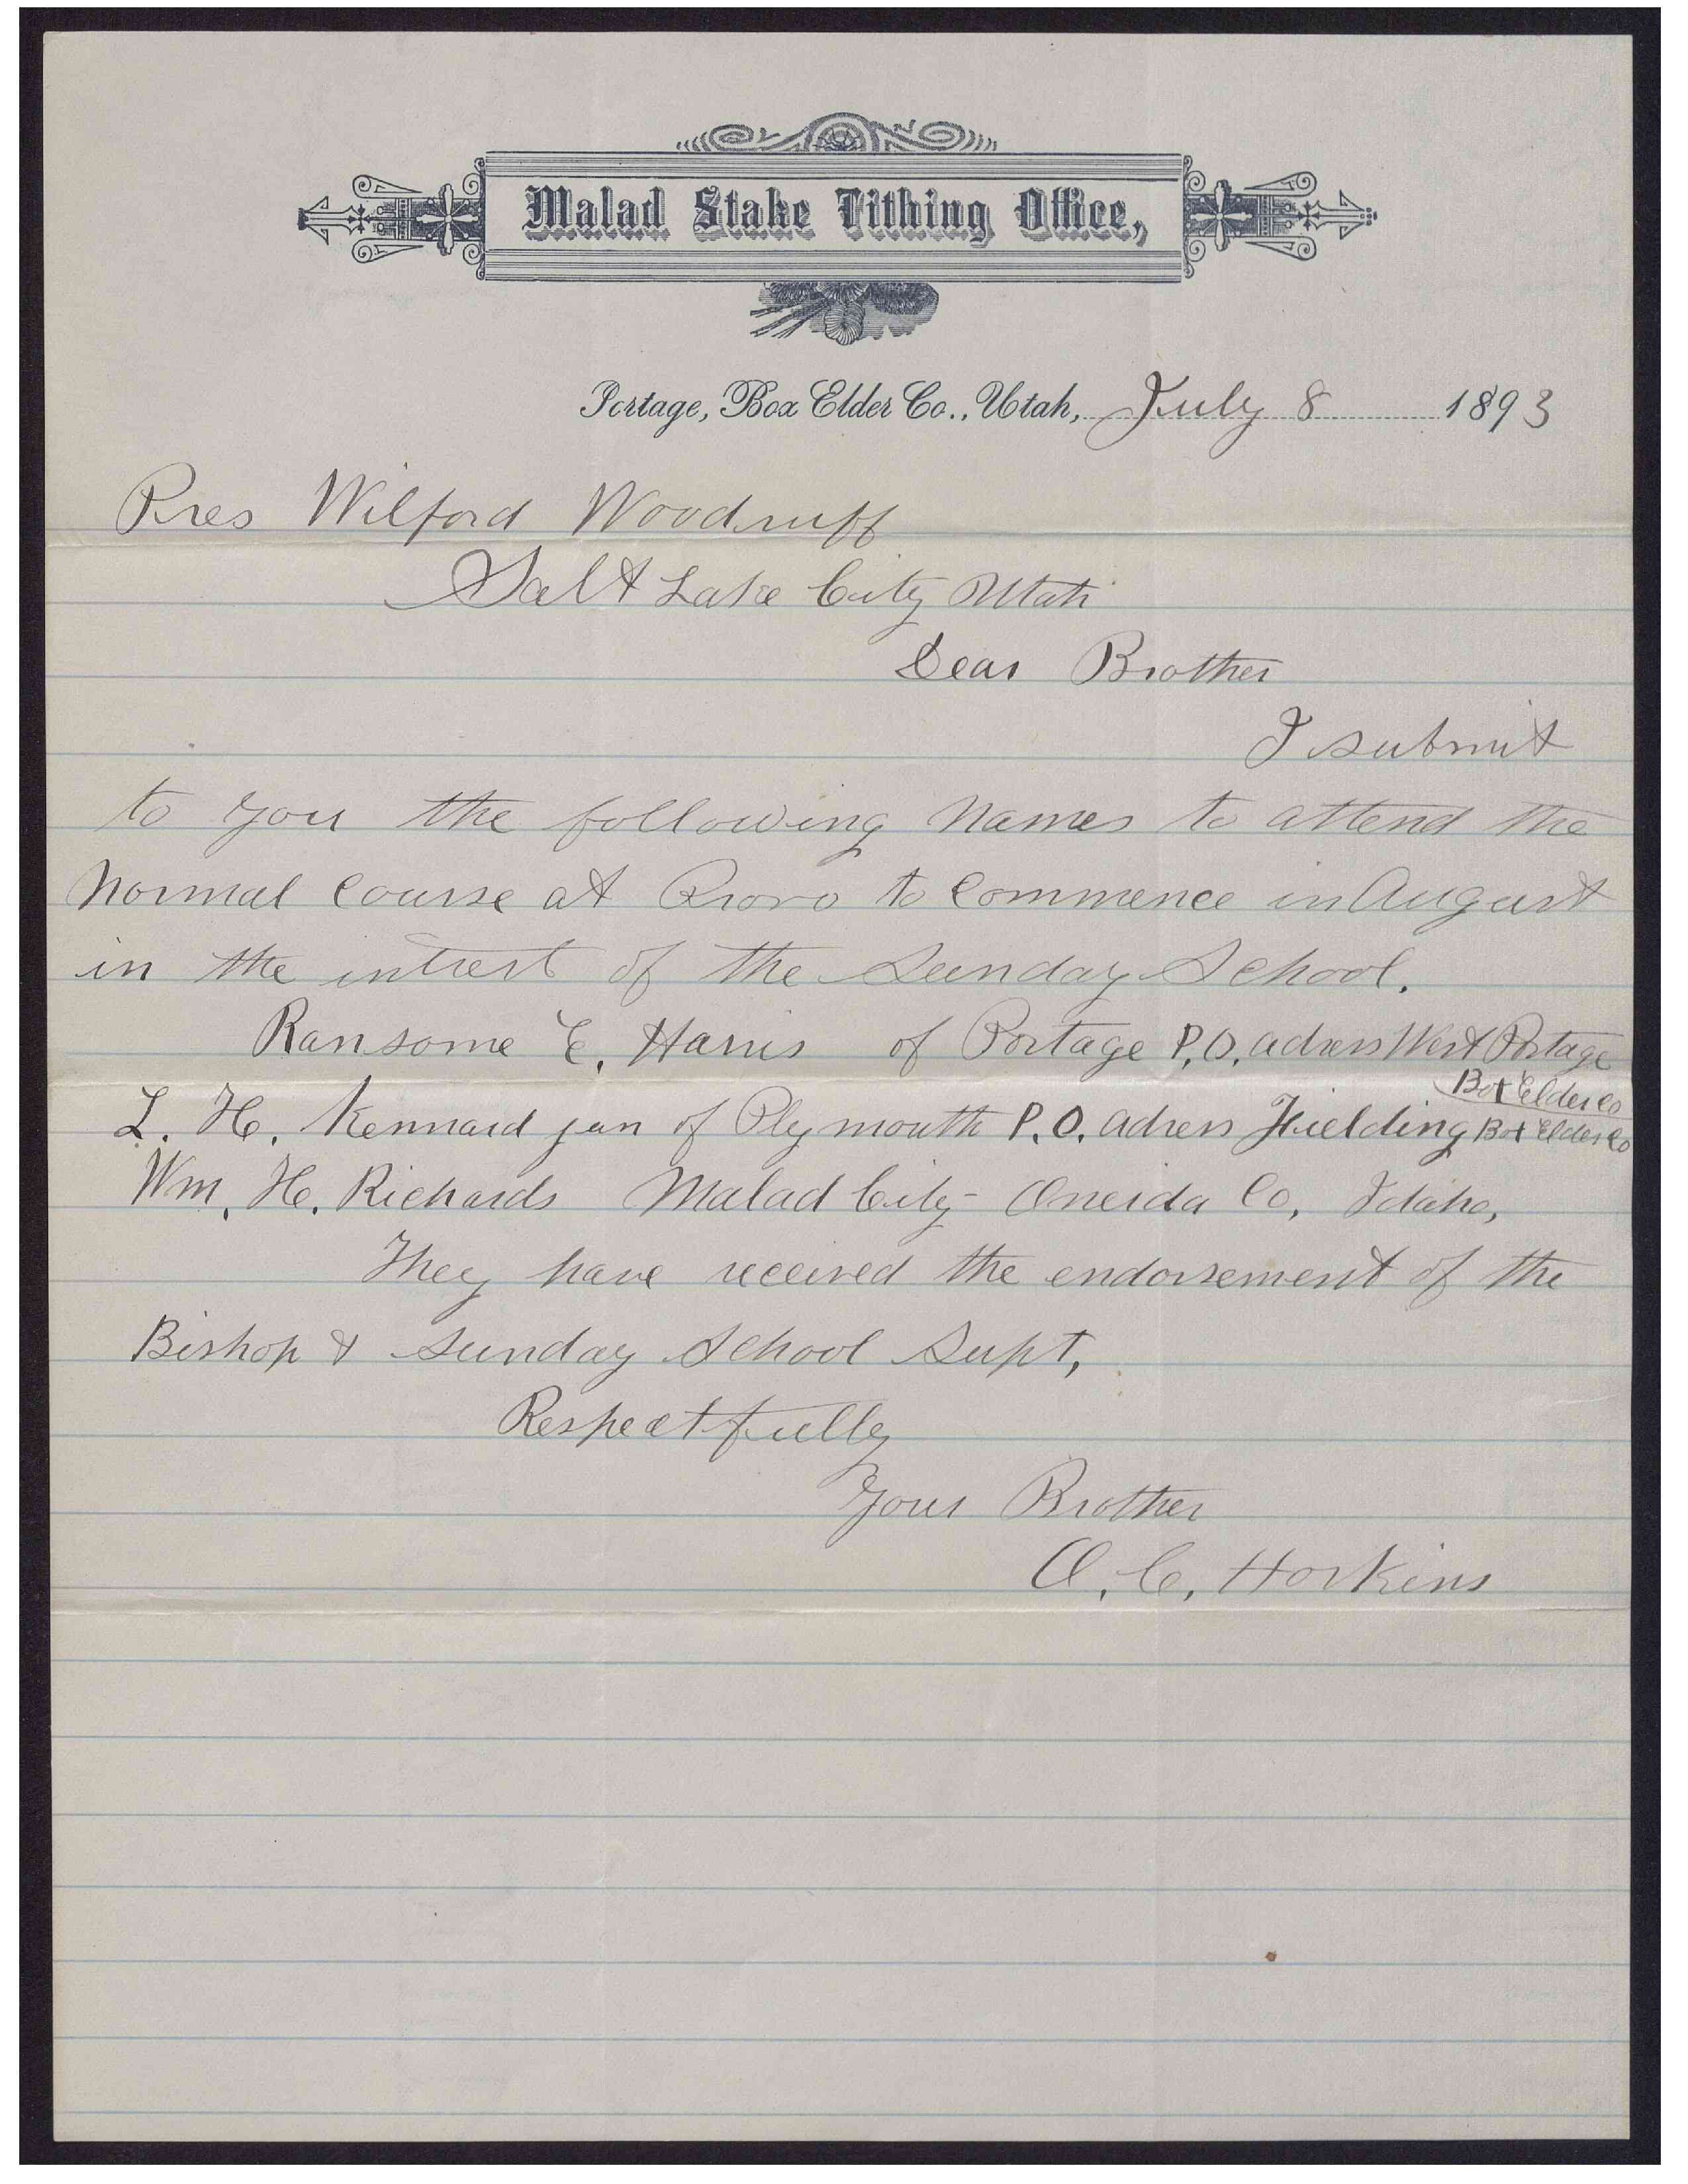 Malad Stake Tithing Office,
Portage, Box Elder Co., Utah, July 8 1893
Pres Wilford Woodruff
Salt Lake City Utah
Dear Brother
I submit
to you the following names to attend the
Normal Course at Provo to Commence in August
in the intrest of the Sunday School.
Ransome E. Harris of Portage P.O. adress West Portage
Box Elder Co
L. H. Kennard jun of Plymouth P.O. adress Fielding Box Elder Co
Wm. H. Richards Malad City Oneida Co, Idaho,
They have received the endorsement of the
Bishop & Sunday School Supt,
Respectfully
Your Brother
O. C. Hoskins